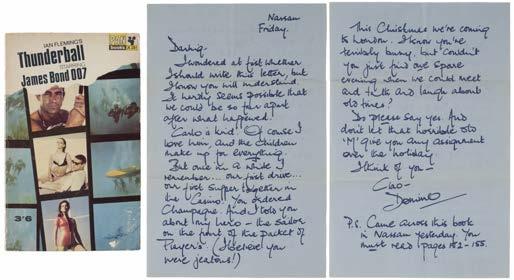 PAN
books
X 201
IAN FLEMING'S
Thunderball
STARRING
James Bond 007
3'6
Nassau
Friday.
Darling.
I wondered at first whether
I should write this letter, but
I know you will understand.
It hardly seems possible that
we could be so far apart
after what happened.
Carlo's kind. Of course I
love him, and the children
make up for everything.
But once in a while I
remember... our first drive...
our first supper together in
the Casino. You ordered
Champagne. And I told you
about my hero - the sailor
on the front of the packet of
Players. (I believe you
were jealous!)
This Christmas we're coming
to London. I know you're
terribly busy, but couldn't
you just find one spare
evening when we could meet
and talk and laugh about
old times?
Do please say yes. And
don't let that horrible old
'M' give you any assignment
over the holiday.
I think of you -
Ciao -
Domino
P.S. Came across this book
in Nassau yesterday. You
must read pages 152-155.